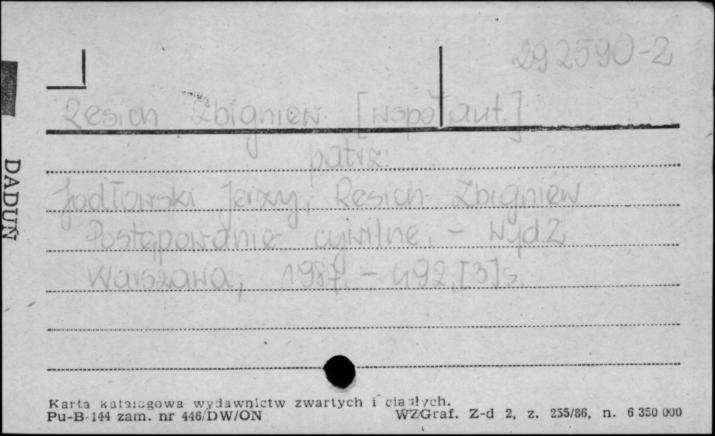 292590-2
Resich Zbigniew [współaut.]
patrz:
Jodłowski Jerzy, Resich Zbigniew
Postępowanie cywilne. - Wyd 2
Warszawa, 1987. - 492,[3]s.
DADUŃ
Karta katalogowa wydawnictw zwartych i ciągłych.
Pu-B-144 zam. nr 446/DW/ON
WZGraf. Z-d 2, z. 255/86, n. 6 350 000